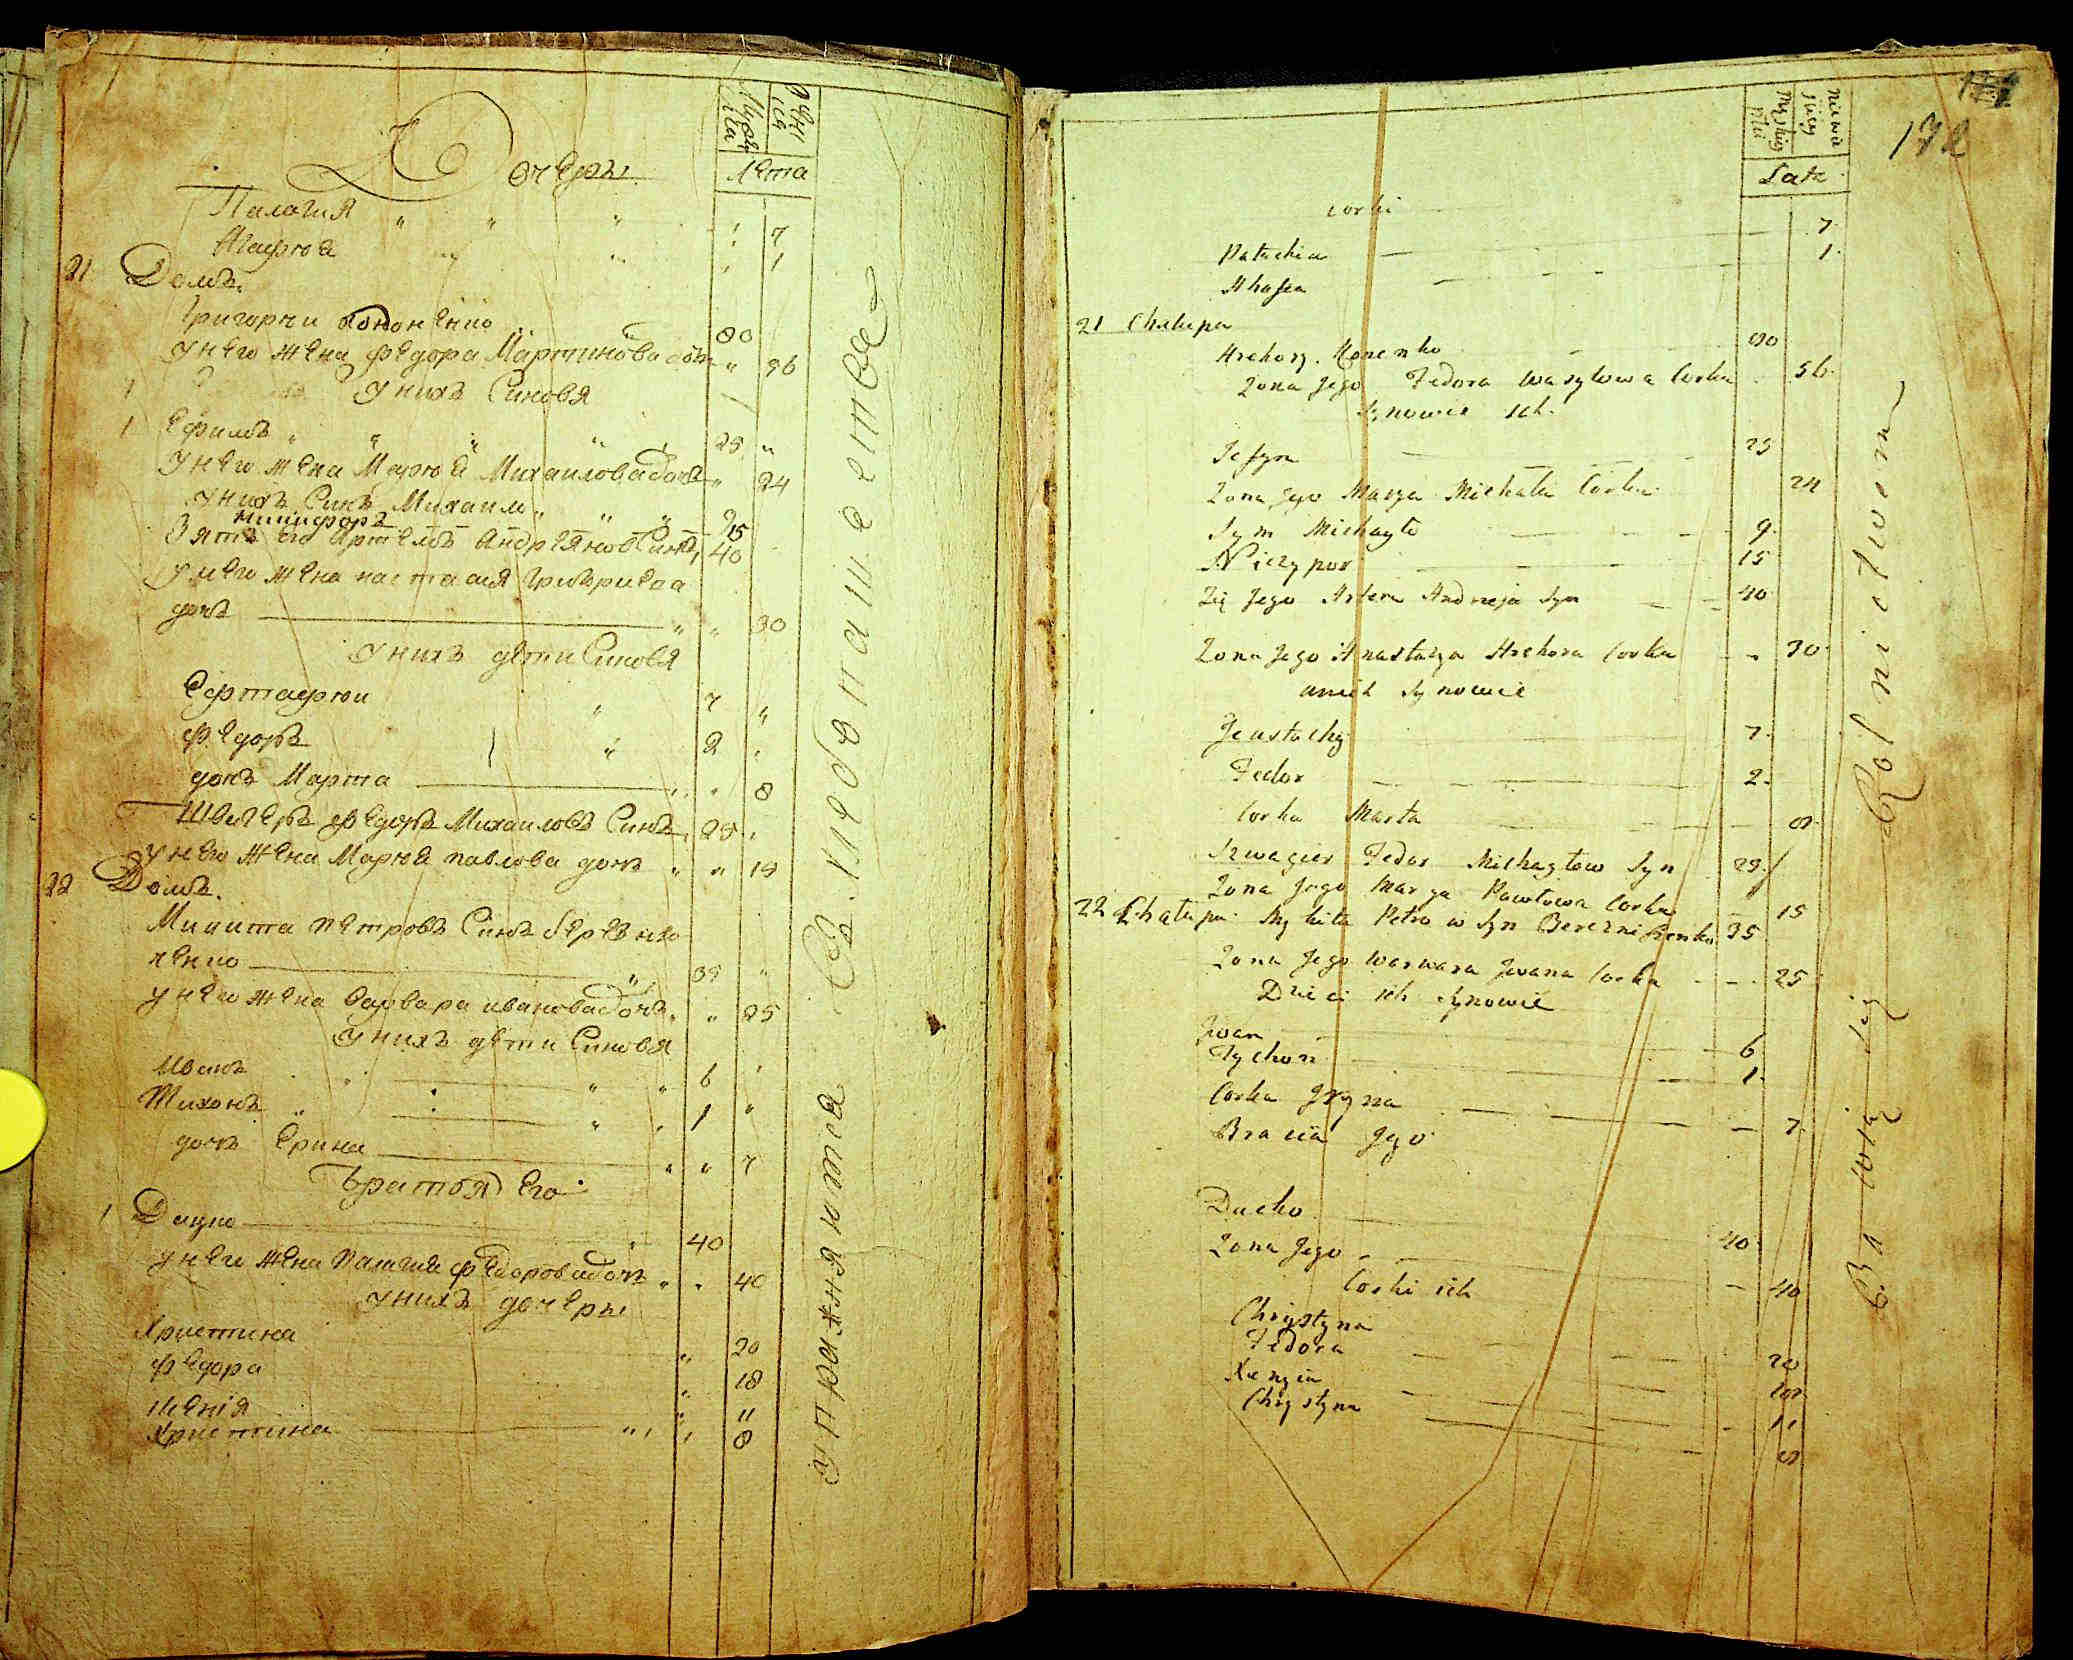 Дочеры
лета
Палагия " " " 7
Агафия 1
21 Домъ.
Григорчи Кононенко 80
У него жена Федора Мартинова дочь " 56
У нихъ Синовя
1 Ефимъ " " " " 25 "
У него жена Мария Михаилова дочь " 24
У нихъ Синъ Михаил " " " 9
Никифоръ 15
Зятъ его Артемъ Андреяновъ Синъ 40
У него жена настасия Григориева
дочь " " 30
У нихъ дети Синовя
Ефтафии " 7 "
Федоръ " 2 "
дочь Марта " " 8
Швагеръ Федоръ Михаиловъ Синъ 25 "
У него жена Мария павлова дочь " " 15
22 Домъ.
Микита петровъ Синъ
ченко 35 "
У него жена Варвара иванова дочь " " 25
У нихъ дети Синовя
Иванъ " " 6 "
Тихонъ " " 1 "
дочь Ерина " " 7
Братья Его
1 Дацко 40
У него жена Палагия Федорова дочь " " 40
У нихъ дочеры
Христина " 20
Федора " 18
11
Христина " " 8
упражняются въ хлебопашестве
172
niewie
sciey
męskiej
płci
Lata
corki
Palachia 7
Ahafia 1
21 Chalupa
Hrehory Konenko 80
Zona Jego Fedora Wasylowa Corka 56
Synowie ich
Jefym 25
Zona Jego Marya Michała Corka 24
Syn Michayło 9
Niczypor 15
Zię Jego Artem Andreja Syn 40
Zona Jego Anastazya Hrehora Corka 30
u nich Synowie
Jeustachy 7
Fedor 2
Corka Marta 8
Szwagier Fedor Michayłow Syn 25
Zona Jego Marya Pawłowa Corka 15
22 Chalupa Mykita Petrow Syn 35
Zona Jego Warwara Jwana Corka 25
Dzieci ich Synowie
Jwan 6
Tychon 1
Corka Jryna 7
Bracia Jego
Dacko 40
Zona Jego 40
Corki ich
Chrystyna 20
Fedora 18
Xenzia 11
Chrystyna 8
Bawią się Rolnictwem